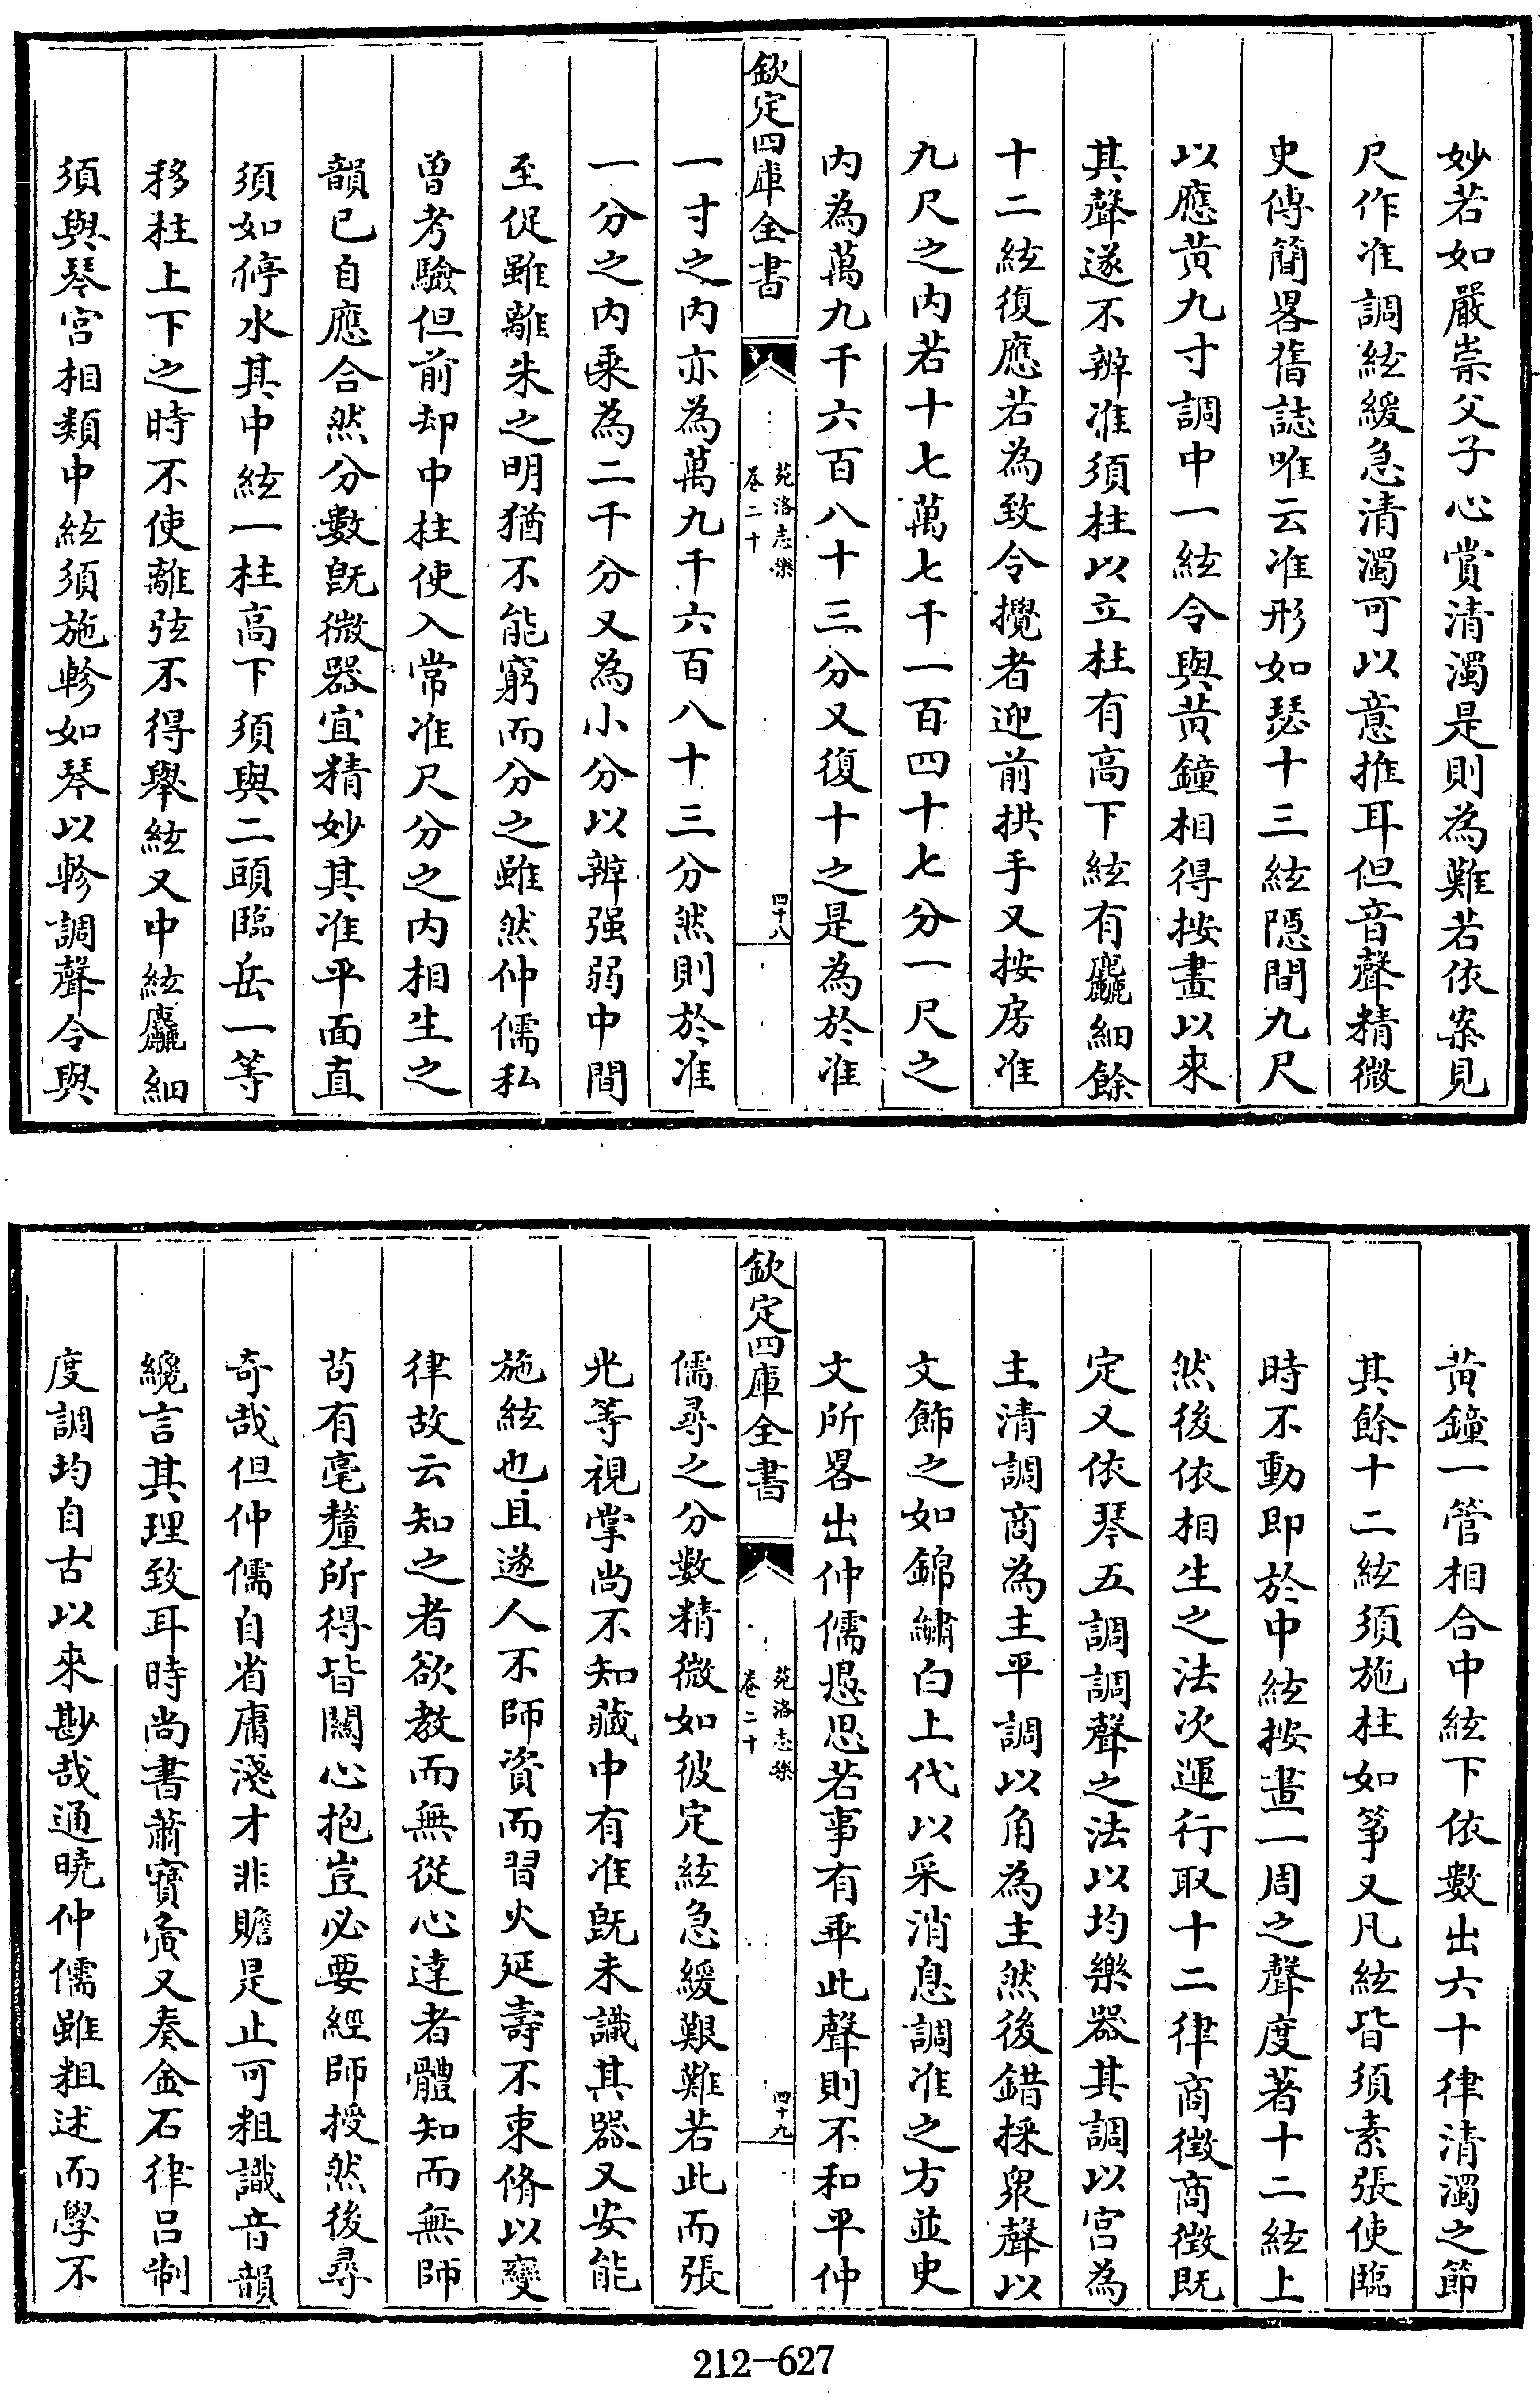 妙若如嚴崇父子心賞清濁是則為難若依案見
尺作准調絃緩急清濁可以意推耳但音聲精微
史傳簡畧舊誌唯云准形如瑟十三絃隱間九尺
以應黄九寸調中一絃令與黄鐘相得按畫以來
其聲遂不辨准須柱以立柱有高下絃有麤細餘
十二絃復應若為致令攪者迎前拱手又按房准
九尺之内若十七萬七千一百四十七分一尺之
内為萬九千六百八十三分又復十之是為於准
欽定四庫全書
苑洛志樂
卷二十
四十八
一寸之内亦為萬九千六百八十三分然則於准
一分之内乗為二千分又為小分以辨强弱中間
至促雖離朱之明猶不能窮而分之雖然仲儒私
曽考驗但前却中柱使入常准尺分之内相生之
韻已自應合然分數旣微器宜精妙其准平面直
須如停水其中絃一柱高下須與二頭臨岳一等
移柱上下之時不使離弦不得舉絃又中絃麤細
須與琴宫相類中絃須施軫如琴以軫調聲令與
黄鐘一管相合中絃下依數出六十律清濁之節
其餘十二絃須施柱如筝又凡絃皆須素張使臨
時不動即於中絃按畫一周之聲度著十二絃上
然後依相生之法次運行取十二律商徴商徴既
定又依琴五調調聲之法以均樂器其調以宫為
主清調商為主平調以角為主然後錯採衆聲以
文飾之如錦繡白上代以采消息調准之方並史
文所畧出仲儒愚思若事有乖此聲則不和平仲
欽定四庫全書
苑洛志樂
卷二十
四十九
儒尋之分數精微如彼定絃急緩艱難若此而張
光等視掌尚不知藏中有准旣未識其器又安能
施絃也且遂人不師資而習火延壽不束脩以變
律故云知之者欲教而無從心達者體知而無師
茍有毫釐所得皆關心抱豈必要經師授然後尋
奇哉但仲儒自省庸淺才非贍是止可粗識音韻
纔言其理致耳時尚書蕭寳夤又奏金石律吕制
度調均自古以來尠哉通曉仲儒雖粗述而學不
212-627